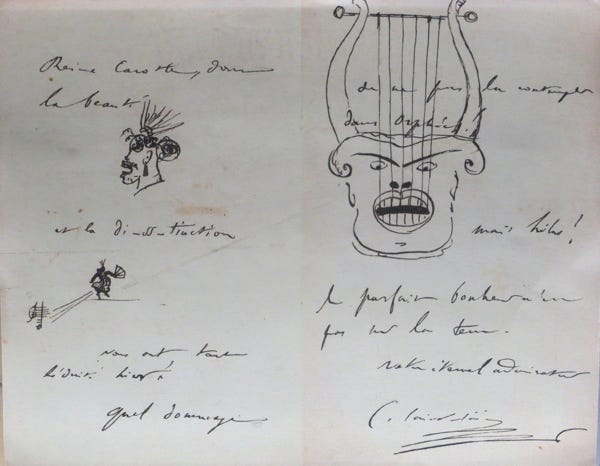 Reine Carotte, dont
la beauté
et la di-ss-tinction
nous ont tant
séduits hier!
quel dommage
de ne pas la contempler
dans Orphée!!
mais hélas!
le parfait bonheur n'est
pas sur la terre.
votre éternel admirateur
C. Saint-Saëns